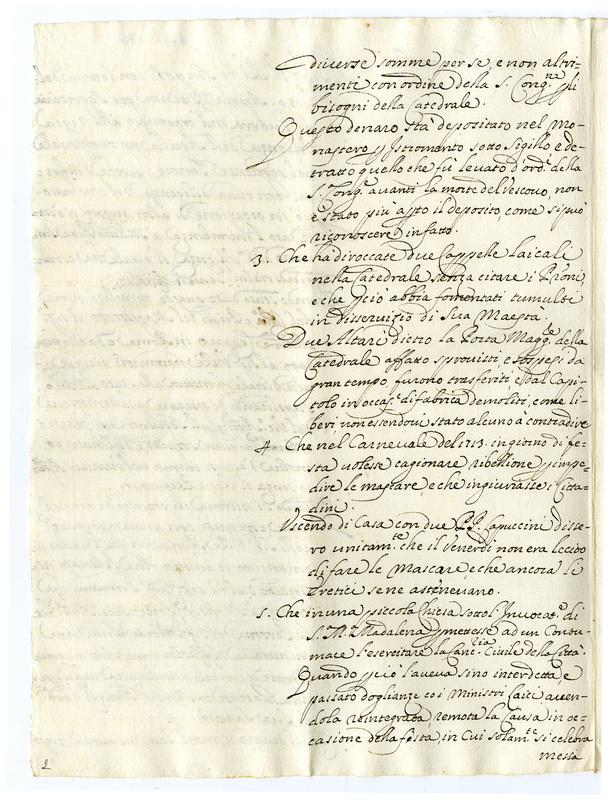 diverse somme per se, e non altri-
menti con ordine della S. Cong.ne p gli
bisogni della Catedrale.
Questo denaro stà depositato nel Mo-
nastero p stromento sotto sigillo e de-
tratto quello che fù levato d'ord.e della
S. Cong.e avanti la morte del Vescovo, non
è stato più apto il deposito, come si può
riconoscere in fatto.
3. Che hà diroccate due Cappelle laicali
nella Catedrale senza citare i Proni,
e che p ciò abbia fomentati tumulti
in disservizio di Sua Maestà.
Due Altari dietro la Porta Magg.re della
Catedrale affatto sprovisti, e sospesi da
gran tempo, furono trasferiti, e dal Capi-
tolo in occas.e di fabrica demoliti, come li-
beri non essendovi stato alcuno à contradire
4. Che nel Carnevale del 1713. in giorno di fe-
sta volesse cagionare ribellione p impe-
dire le mascare e che ingiuriasse i Citta-
dini.
Uscendo di Casa con due PP. Capuccini disse-
ro unitam.te che il Venerdì non era lecito
di fare le Mascare, e che ancora li
Eretici se ne astenevano.
5. Che in una piccola Chiesa sotto l'Invocat.e di
S. M.a Madalena pmettesse ad un Contu-
mace l'esercitare la Canc.ria Civile della Città.
Quando p ciò l'aveva sino interdetta, e
passato doglianze co i Ministri Laici aven-
dola reintegrata, remota la Causa, in oc-
casione della festa, in cui solam.te si celebra
messa
2